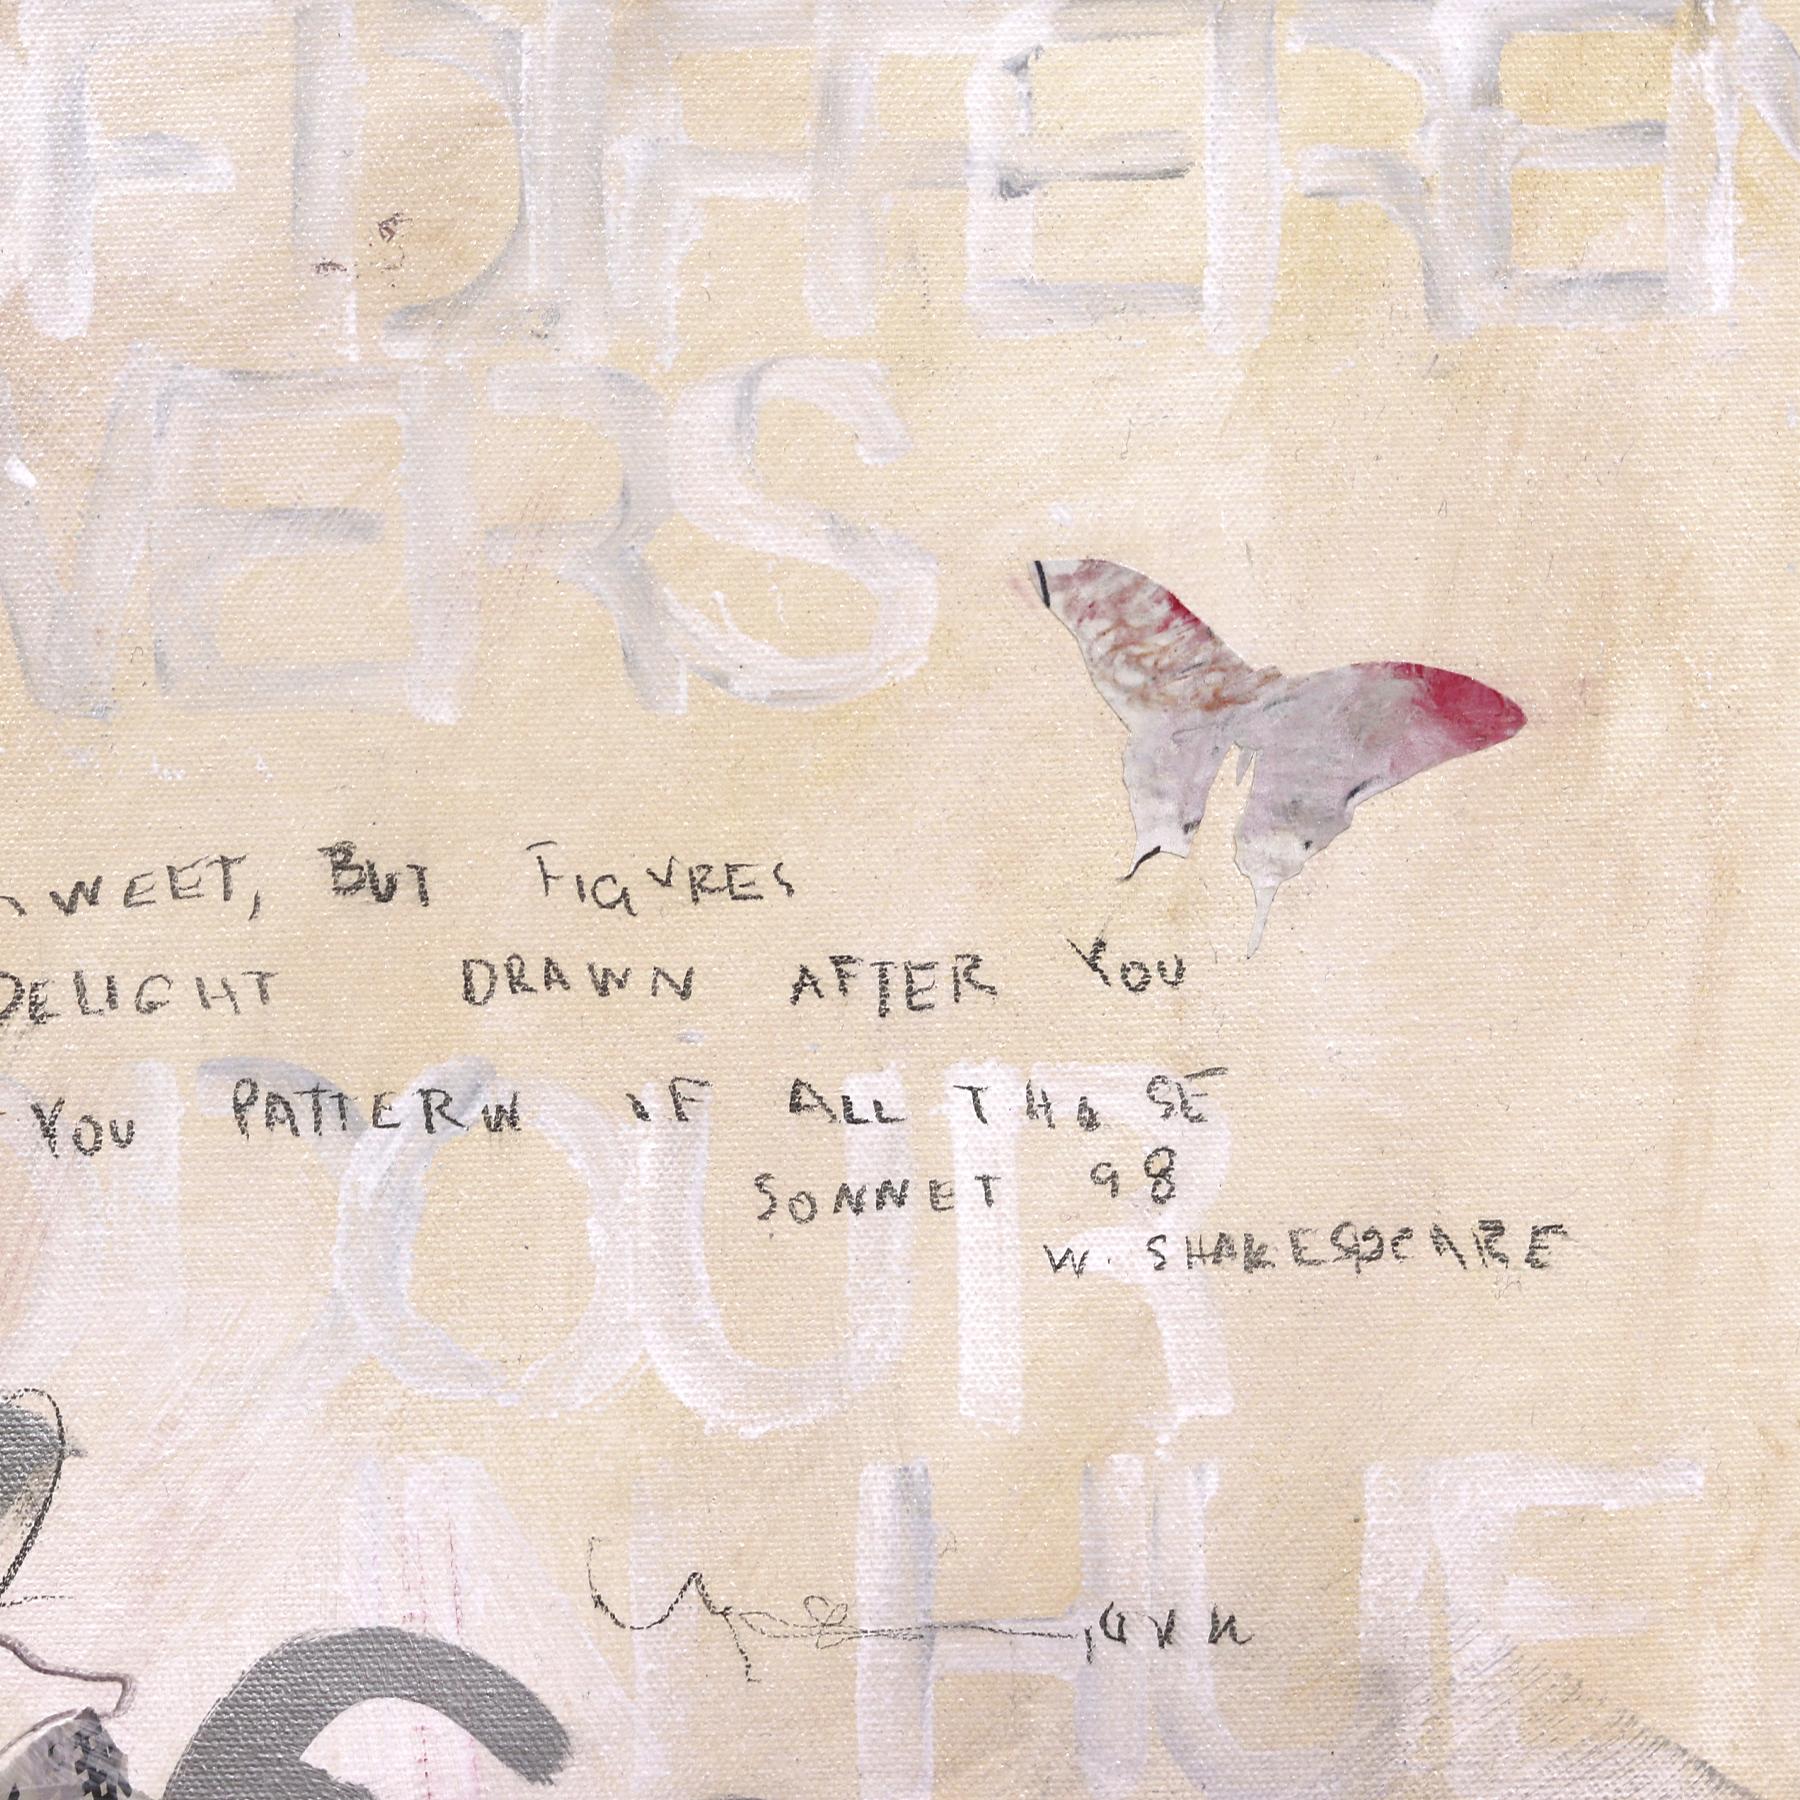 F DIFFEREN
WERS
SWEET, BUT FIGVRES
DELIGHT DRAWN AFTER YOU
YOU PATTERN IF ALL THOSE
SONNET 98
W. SHAKESPEARE
ODOUR
IN HUE